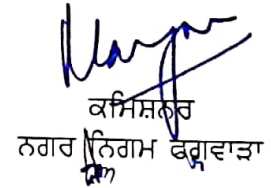 ਕਮਿਸ਼ਨਰ
ਨਗਰ ਨਿਗਮ ਫਗਵਾੜਾ